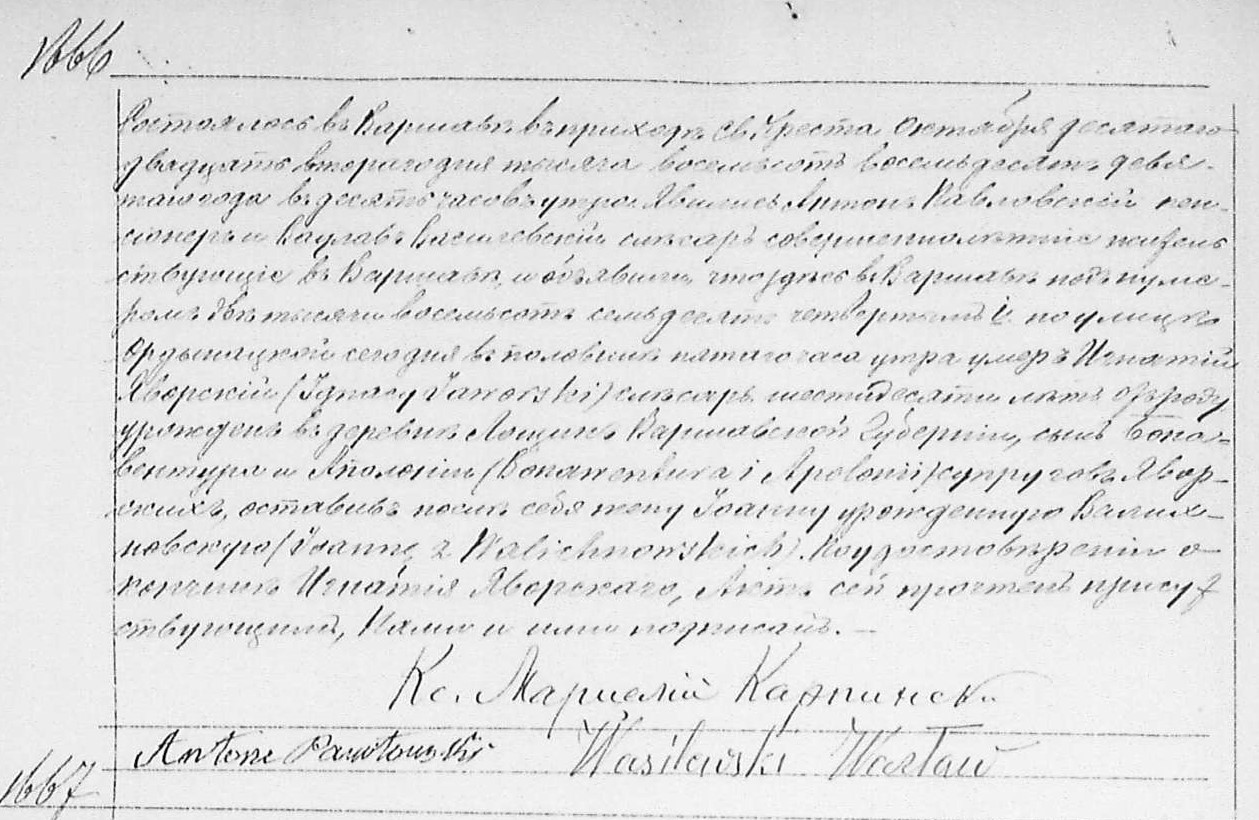 1666
Состоялось въ Варшавѣ въ приходѣ Св. Креста Октября десятаго
двадцать втораго дня тысяча восемьсотъ восемьдесятъ девя-
таго года въ десять часовъ утра. Явились Антонъ Павловскій пен-
сіонеръ и Вацлавъ Василевскій слѣсарь совершеннолѣтніе житель
ствующіе въ Варшавѣ, и объявили, что здѣсь въ Варшавѣ подъ нуме-
ромъ двѣ тысячи восемьсотъ семьдесятъ четвертымъ по улицѣ
Ордынацкой сегодня въ половинѣ пятаго часа утра умеръ Игнатій
Яворскій (Ignacy Jaworski) слѣсарь шестидесяти лѣтъ отъ роду
урожденъ въ деревнѣ Лощинѣ Варшавской Губерніи, сынъ Бона-
вентура и Аполоніи (Bonawentura i Apolonii) супруговъ Явор-
скихъ, оставивъ послѣ себя жену Іоанну урожденную Валих-
новскую (Joannę z Walichnowskich). По удостовѣреніи о
кончинѣ Игнатія Яворскаго, Актъ сей прочтенъ присут
ствующимъ, Нами и ими подписанъ. —
Кс. Марцелій Карпинск
Antoni Pawłowski Wasilewski Wacław
1667